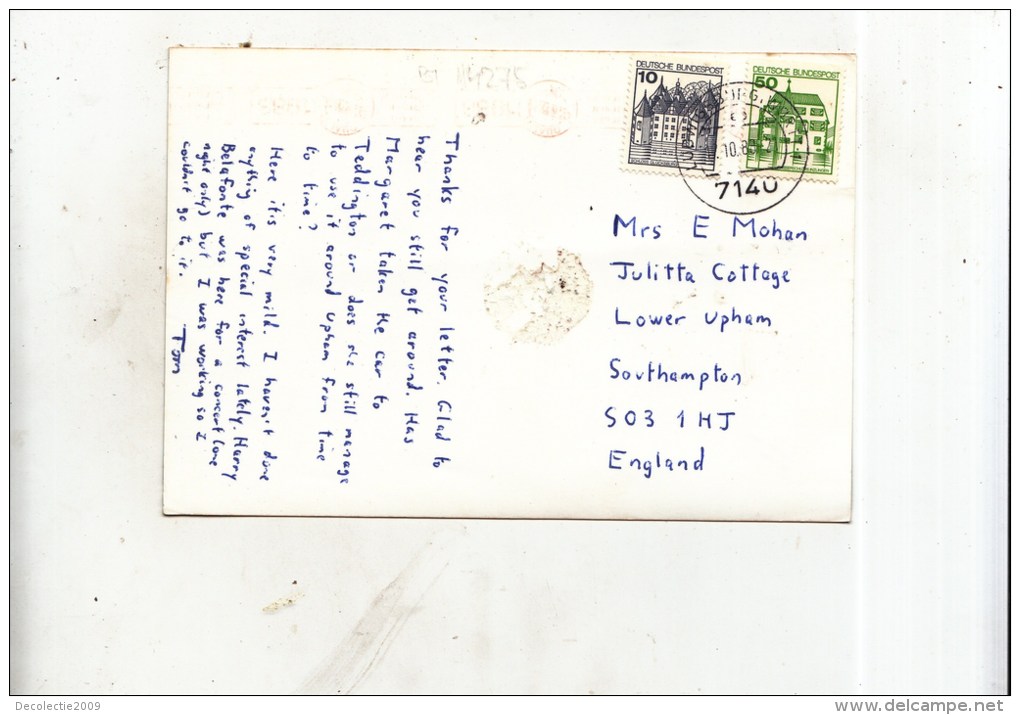 BT 114275
DEUTSCHE BUNDESPOST
10
DEUTSCHE BUNDESPOST
50
7140
Thanks for your letter. Glad to
hear you still get around. Has
Margaret taken the car to
Teddington or does she still manage
to use it around Upham from time
to time?
Here it is very mild. I haven't done
anything of special interest lately. Harry
Belafonte was here for a concert (one
night only) but I was working so I
couldn't go to it.
Tom
Mrs E Mohan
Julitta Cottage
Lower Upham
Southampton
SO3 1HJ
England
Decolectie2009
delcampe.net